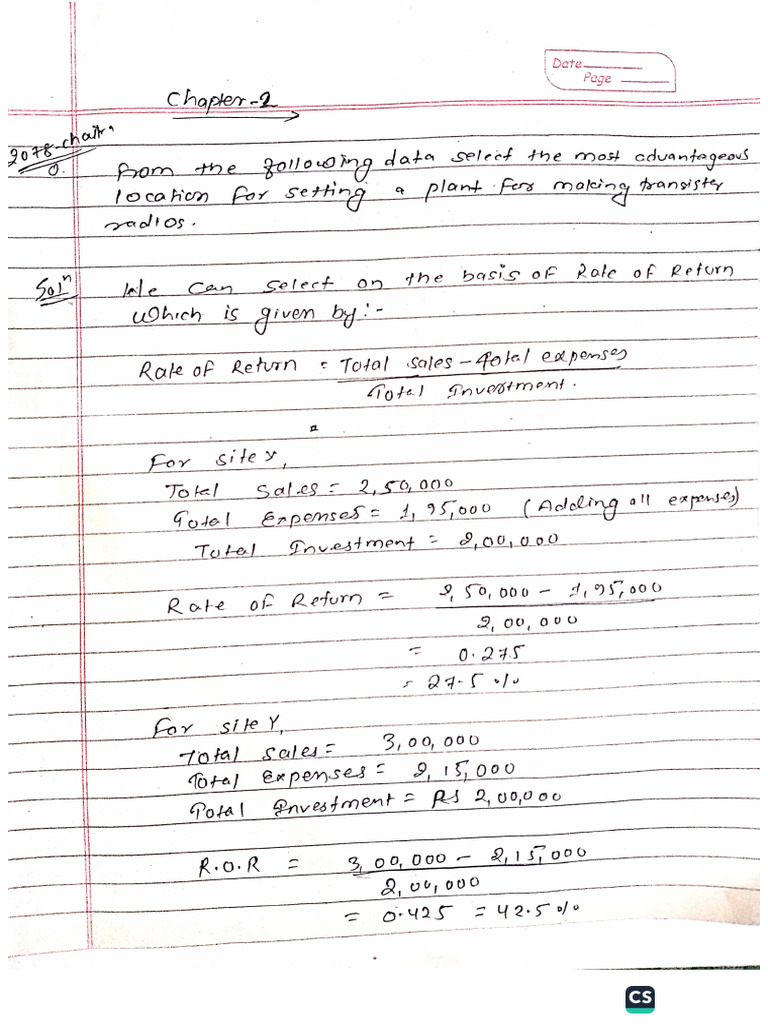 Date
Page
Chapter-2
2078-chaitra
Q. From the following data select the most advantageous
location for setting a plant for making transister
radios.
Solⁿ We can select on the basis of Rate of Return
which is given by:-
Rate of Return = Total sales - Total expenses
Total Investment.
For site X,
Total Sales = 2,50,000
Total Expenses = 1,95,000 (Adding all expenses)
Total Investment = 2,00,000
Rate of Return = 2,50,000 - 1,95,000
2,00,000
= 0.275
= 27.5 %
For site Y,
Total Sales = 3,00,000
Total Expenses = 2,15,000
Total Investment = RS 2,00,000
R.O.R = 3,00,000 - 2,15,000
2,00,000
= 0.425 = 42.5 %
CS